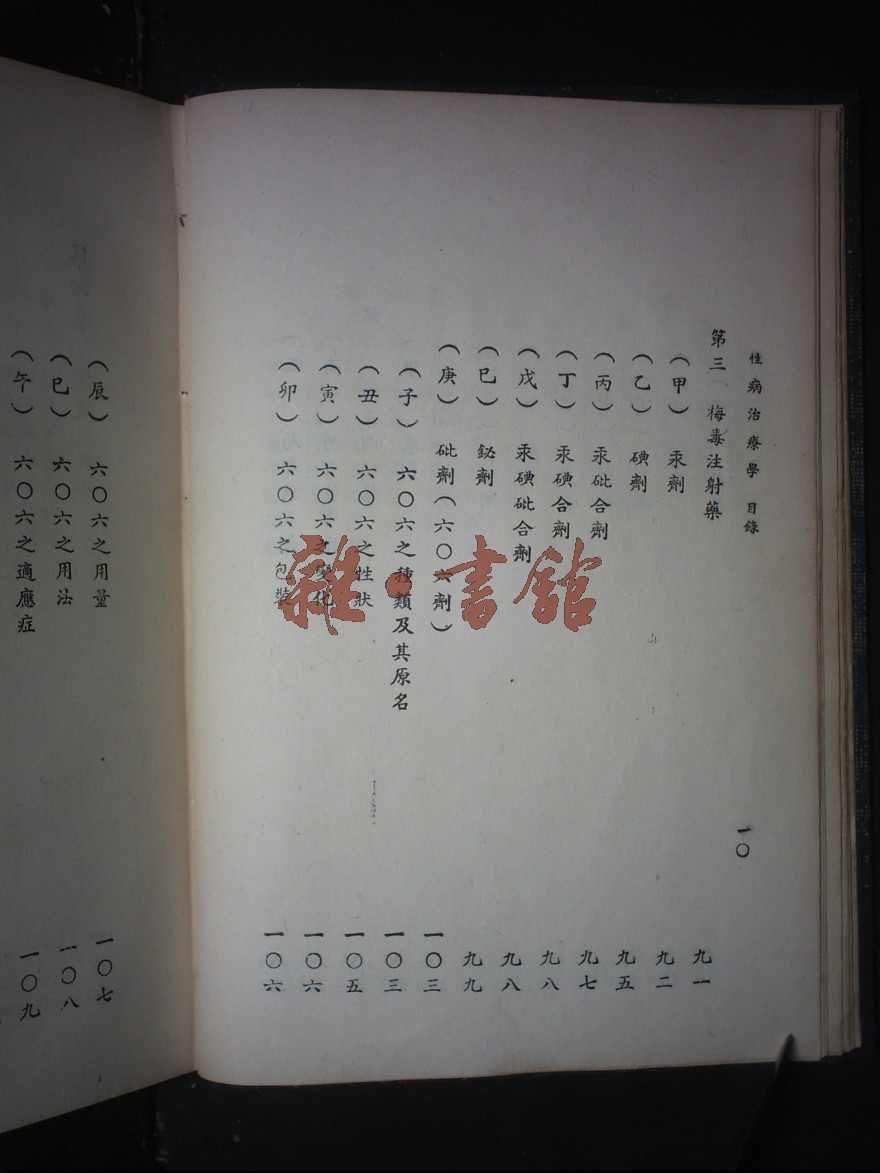 性病治療學 目錄 一〇
第三 梅毒注射藥 九一
(甲) 汞劑 九二
(乙) 碘劑 九五
(丙) 汞砒合劑 九七
(丁) 汞碘合劑 九八
(戊) 汞碘砒合劑 九八
(巳) 鉍劑 九九
(庚) 砒劑(六〇六劑) 一〇三
(子) 六〇六之種類及其原名 一〇三
(丑) 六〇六之性狀 一〇五
(寅) 六〇六之變化 一〇六
(卯) 六〇六之包裝 一〇六
(辰) 六〇六之用量 一〇七
(巳) 六〇六之用法 一〇八
(午) 六〇六之適應症 一〇九
雜·書館